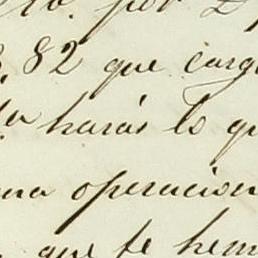 por
82 que carg
harás lo qu
na operacion
que te hem